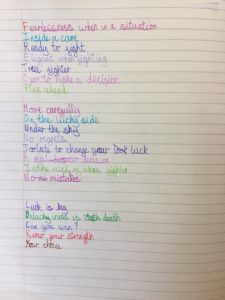 Fearlessness when in a situation
Inside a cave
Ready to fight
Elegant when fighting
True fighter
Open to make a decision
Plan ahead
Move carfully
On the lucky side
Under the sky
No regrets
To late to change your luck
A decision
In the mind of a fighter
No mistakes
Luck is key
is death
you win?
Know your strength
Your choice